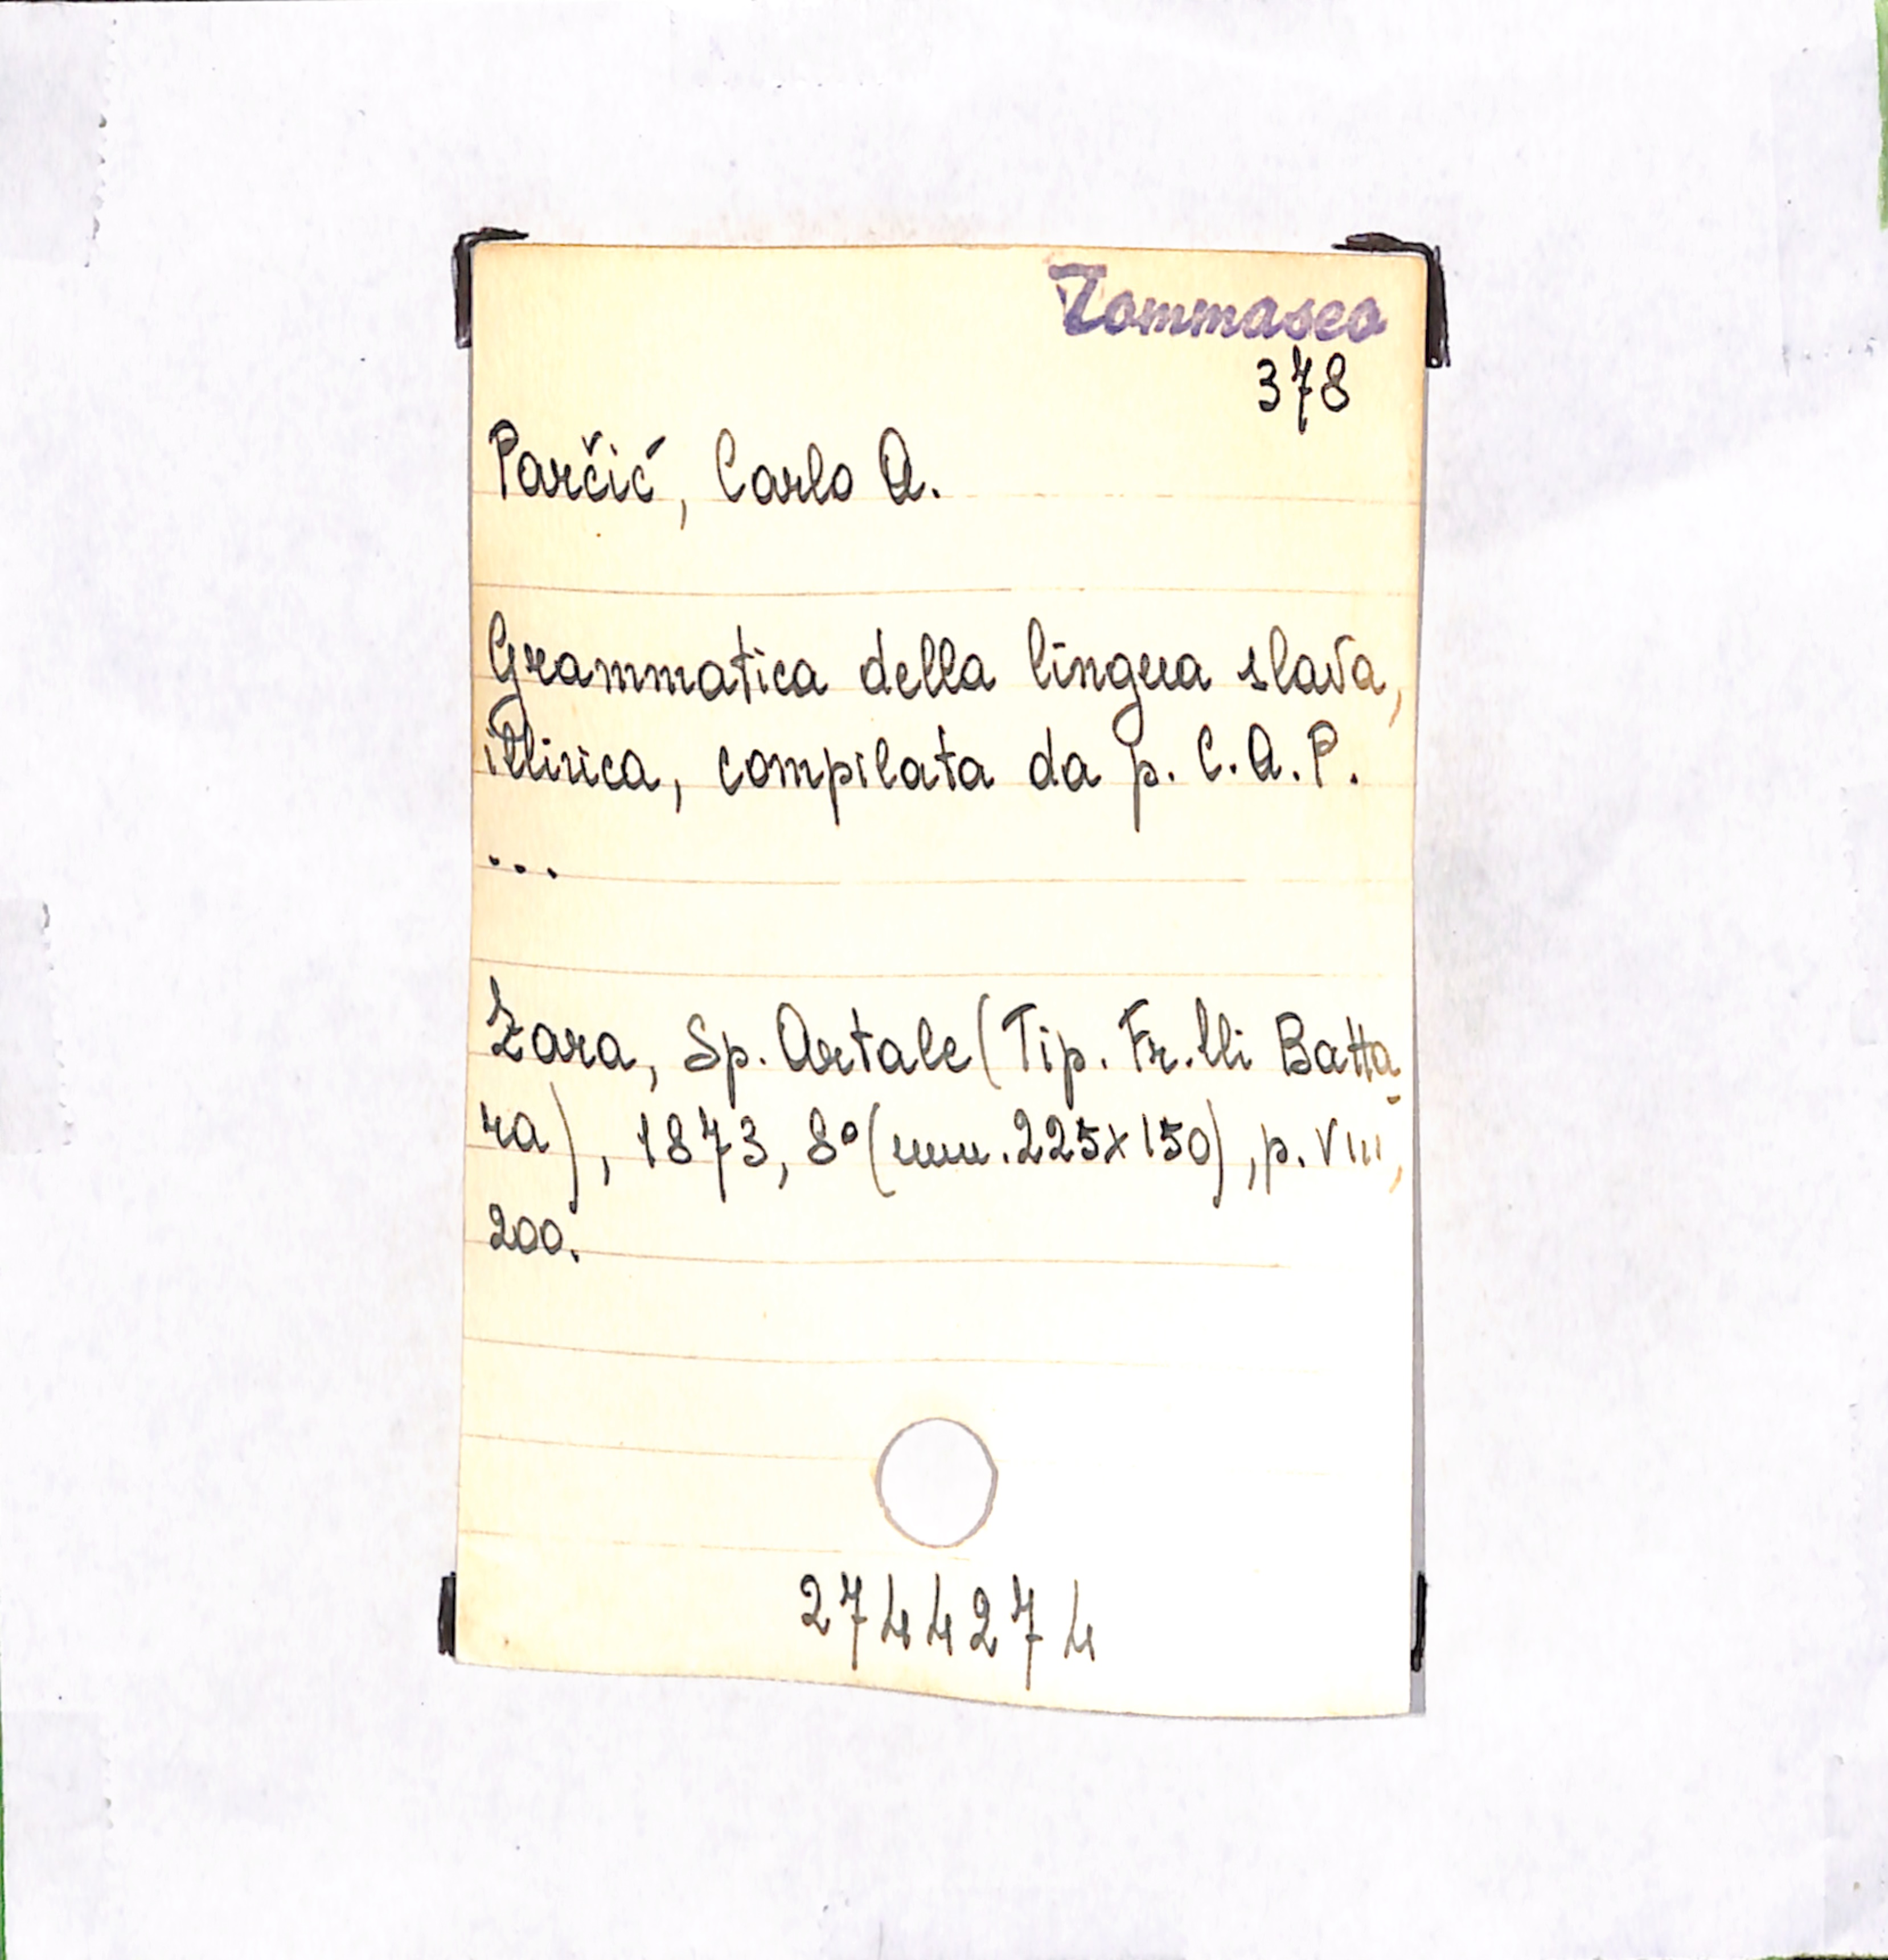 Tommaseo
378
Parčić, Carlo A.
Grammatica della lingua slava,
illirica, compilata da p. C.A.P.
...
Zara, Sp. Artale (Tip. Fr.lli Batta-
ra), 1873, 8° (mm. 225x150), p. VIII,
200.
2744274